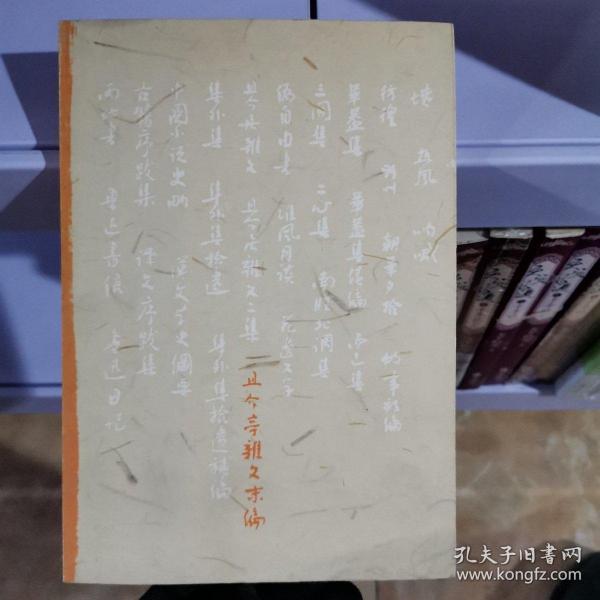 坟 热风 呐喊
彷徨 野草 朝花夕拾 故事新编
华盖集 华盖集续编 而已集
三闲集 二心集 南腔北调集
伪自由书 准风月谈 花边文学
且介亭杂文 且介亭杂文二集 二 且介亭雜文末编
集外集 集外集拾遗 集外集拾遗补编
中国小说史略 汉文学史纲要
古籍序跋集 译文序跋集
两地书 鲁迅书信 鲁迅日记
孔夫子旧书网
www.kongfz.com